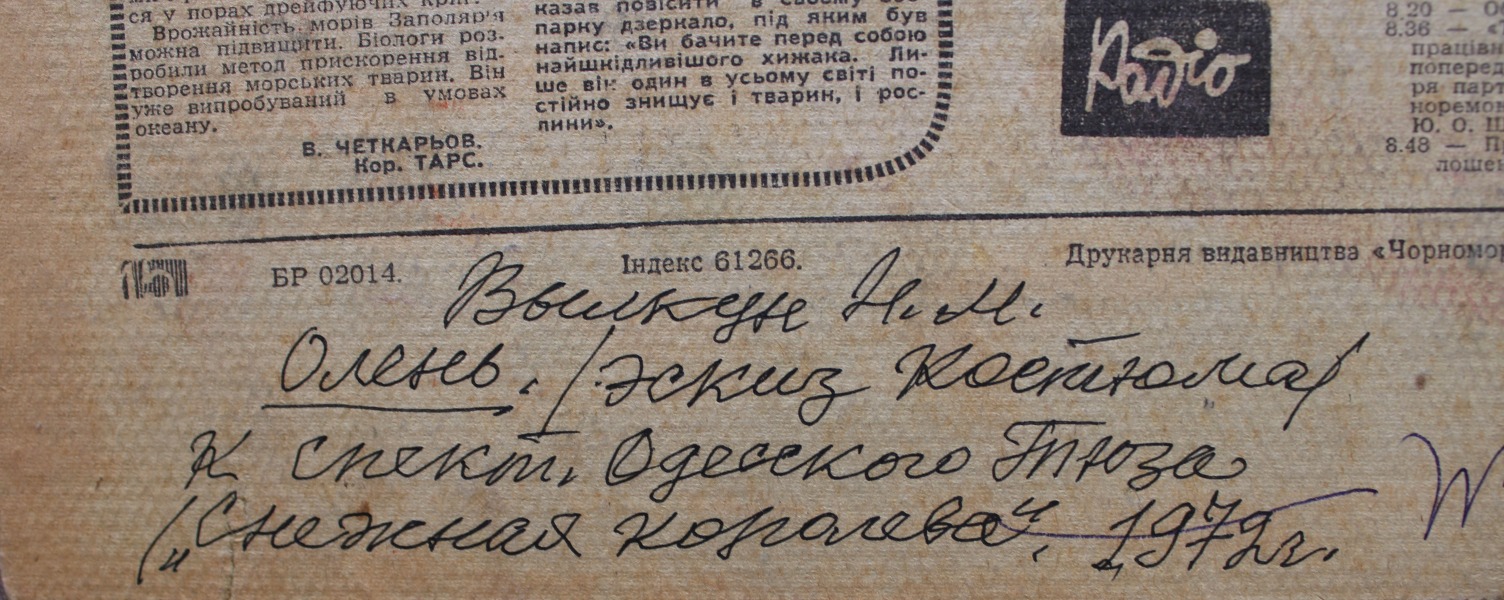 ся у порах дрейфуючих
Врожайність морів Заполяр'я
можна підвищити. Біологи роз-
робили метод прискорення від-
творення морських тварин. Він
уже випробуваний в умовах
океану.
В. ЧЕТКАРЬОВ.
Кор. ТАРС.
казав повісити в своєму
парку дзеркало, під яким був
напис: «Ви бачите перед собою
найшкідливішого хижака. Ли-
ше він один в усьому світі по-
стійно знищує і тварин, і рос-
лини».
Радіо
8.20 —
8.36 —
працівн
поперед
ря парт
норемон
Ю. О. Ш
8.48 — Пр
лоше
БР 02014.
Індекс 61266.
Друкарня видавництва «Чорномор
Вылкун Н. М.
Олень. (Эскиз костюма)
к спект. Одесского Тюза
("Снежная королева". 1972 г.